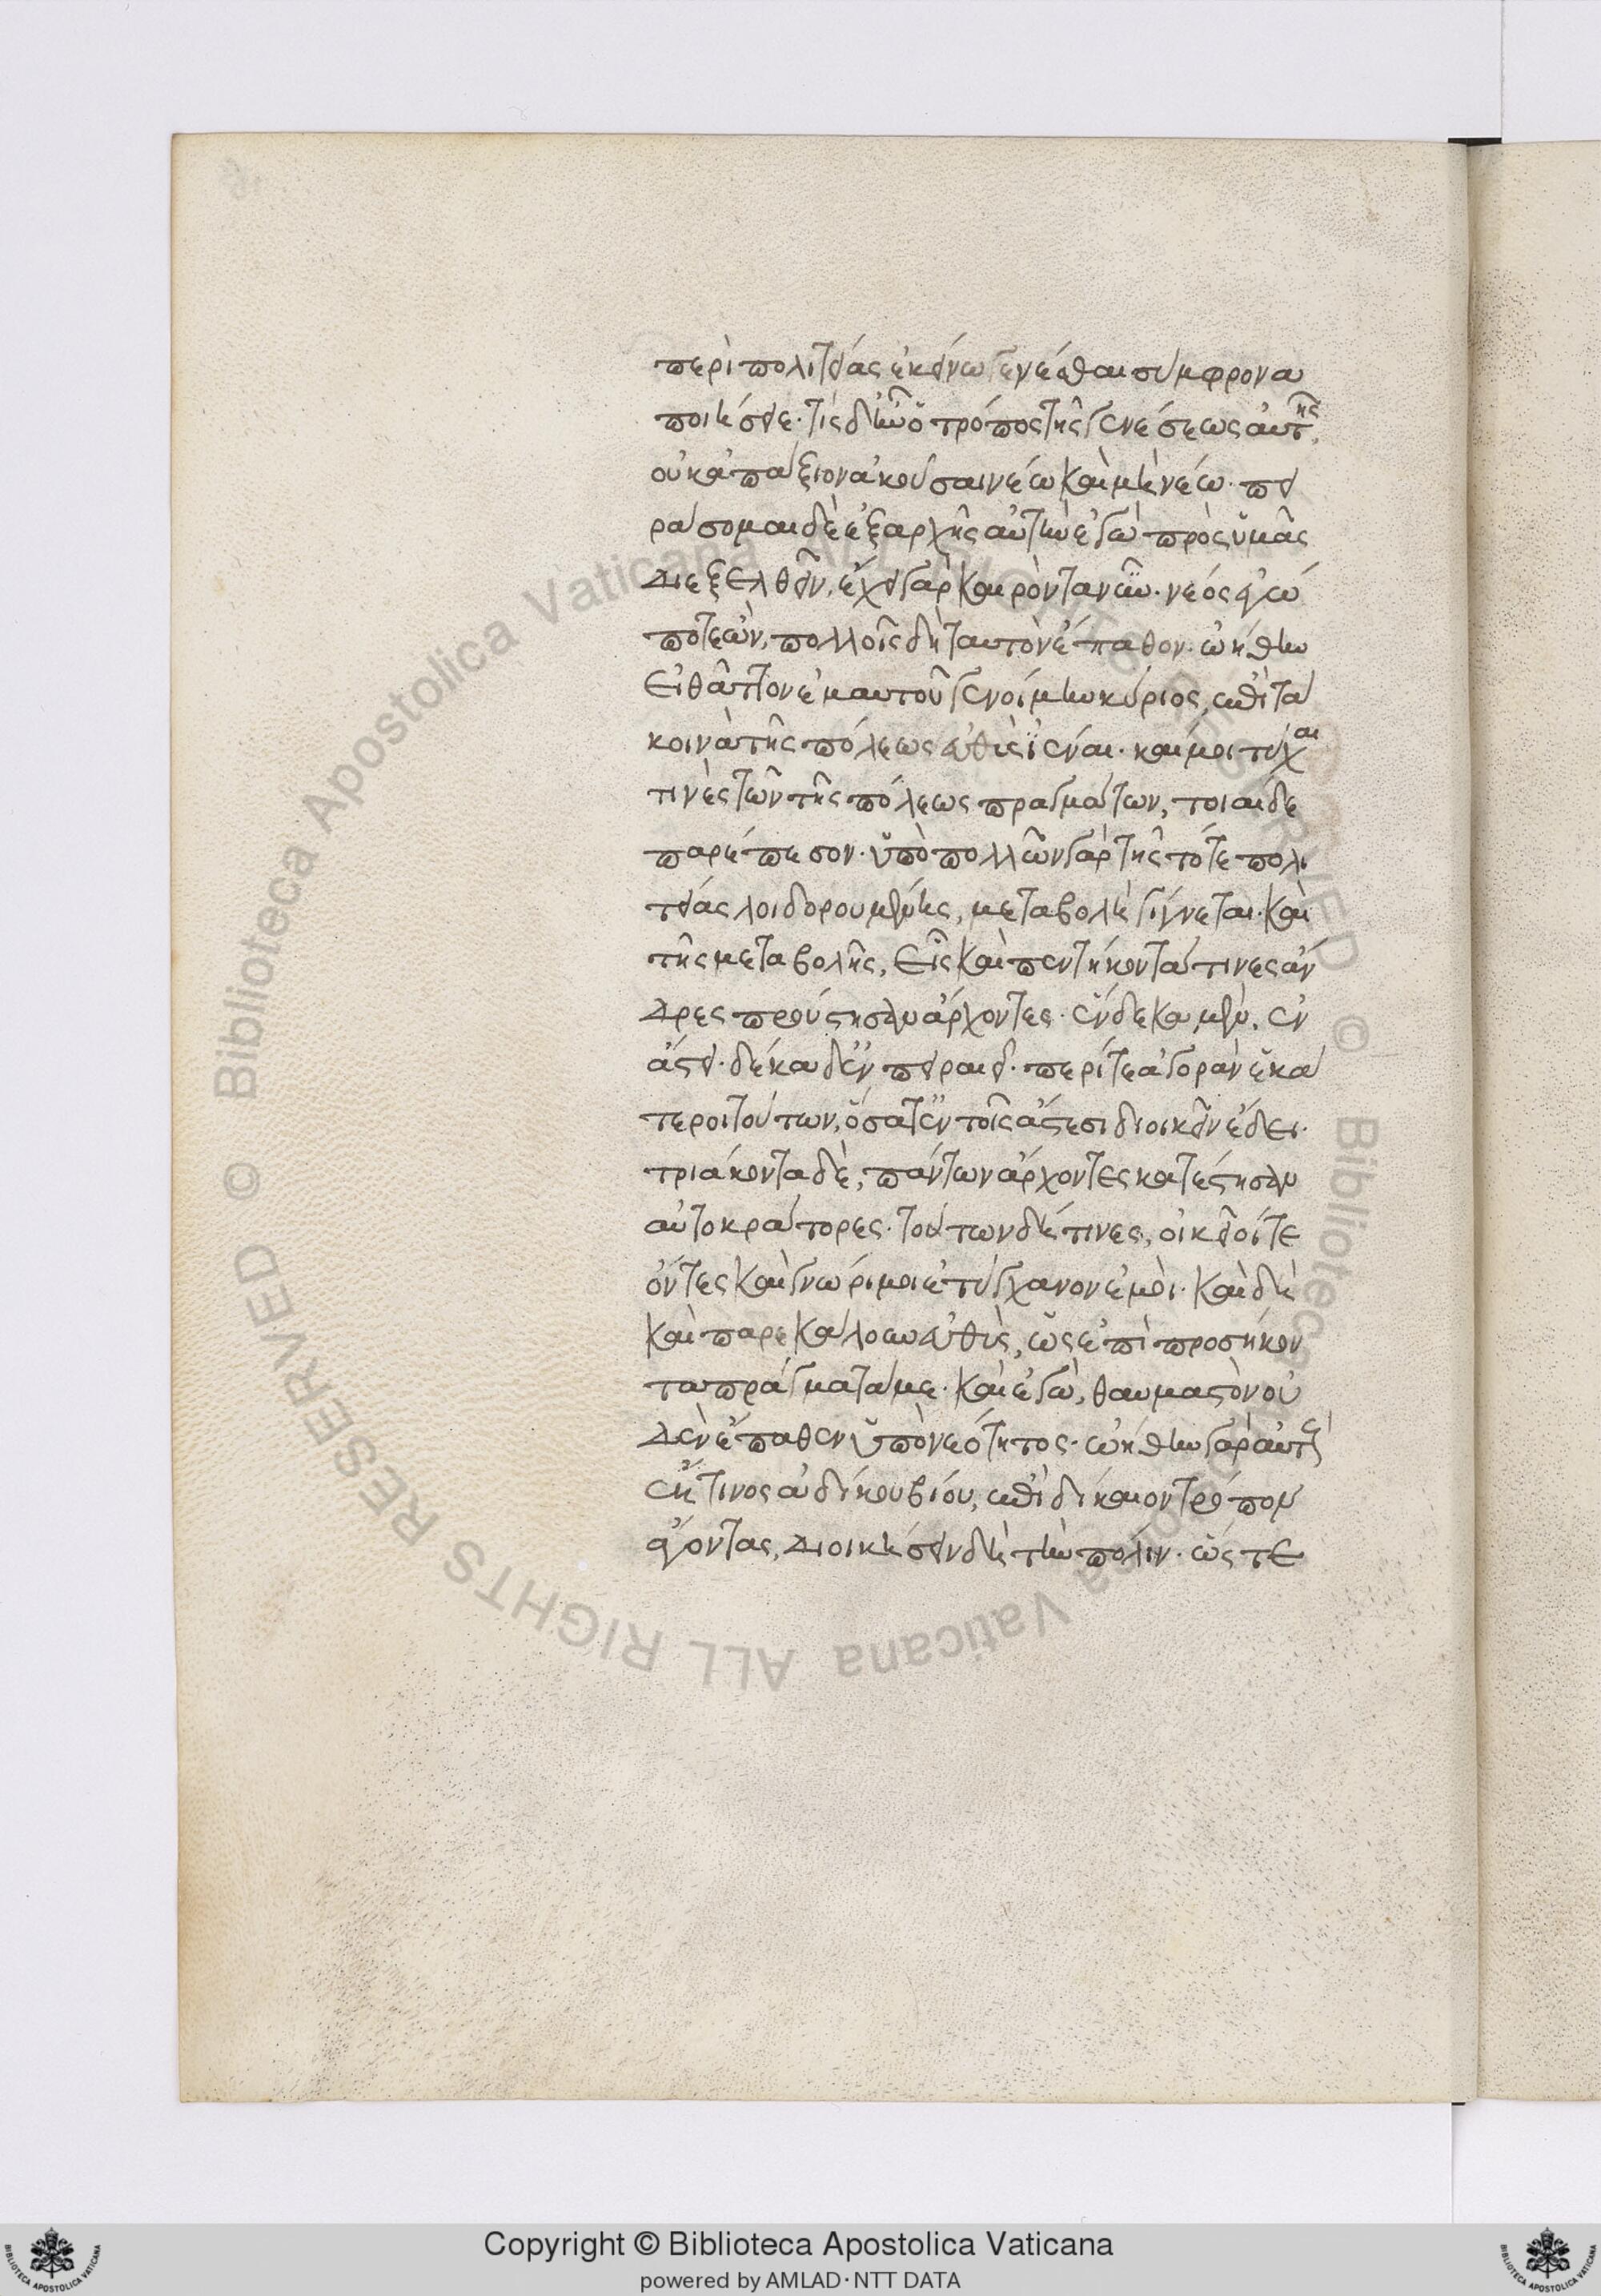 περὶ πολιτείας ἐκείνω γενέσθαι σύμφρονα
ποιήσειε· τίς δ' ἦν ὁ τρόπος τῆς γενέσεως αὐτῆς,
οὐκ ἀπάξιον ἀκοῦσαι νέω καὶ μὴ νέω· πει
ράσομαι δὲ ἐξ ἀρχῆς αὐτὴν ἐγὼ πρὸς ὑμᾶς
διεξελθεῖν, ἔχει γὰρ καιρὸν τανῦν· νέος ἐγώ
ποτε ὢν, πολλοῖς δὴ ταυτὸν ἔπαθον· ὠήθην
εἰ θᾶττον ἐμαυτοῦ γενοίμην κύριος, ἐπὶ τὰ
κοινὰ τῆς πόλεως εὐθὺς ἰέναι· καί μοι τύχαι
τινὲς τῶν τῆς πόλεως πραγμάτων, τοιαίδε
παρέπεσον· ὑπὸ πολλῶν γὰρ τῆς τότε πολι
τείας λοιδορουμένης, μεταβολὴ γίγνεται· καὶ
τῆς μεταβολῆς, εἷς καὶ πεντήκοντά τινες ἄν
δρες προύστησαν ἄρχοντες· ἕνδεκα μὲν, ἐν
ἄστει· δέκα δ' ἐν πειραιεῖ· περί τε ἀγορὰν ἑκά
τεροι τούτων, ὅσα τ' ἐν τοῖς ἄστεσι διοικεῖν ἔδει·
τριάκοντα δὲ, πάντων ἄρχοντες κατέστησαν
αὐτοκράτορες· τούτων δή τινες, οἰκεῖοί τε
ὄντες καὶ γνώριμοι ἐτύγχανον ἐμοί· καὶ δὴ
καὶ παρεκάλουν εὐθὺς, ὡς ἐπὶ προσήκον
τα πράγματά με· καὶ ἐγὼ, θαυμαστὸν οὐ
δὲν ἔπαθεν ὑπὸ νεότητος· ὠήθην γὰρ αὐτοὺς
ἔκ τινος ἀδίκου βίου, ἐπὶ δίκαιον τρόπον
ἄγοντας, διοικήσειν δὴ τὴν πόλιν· ὥστε